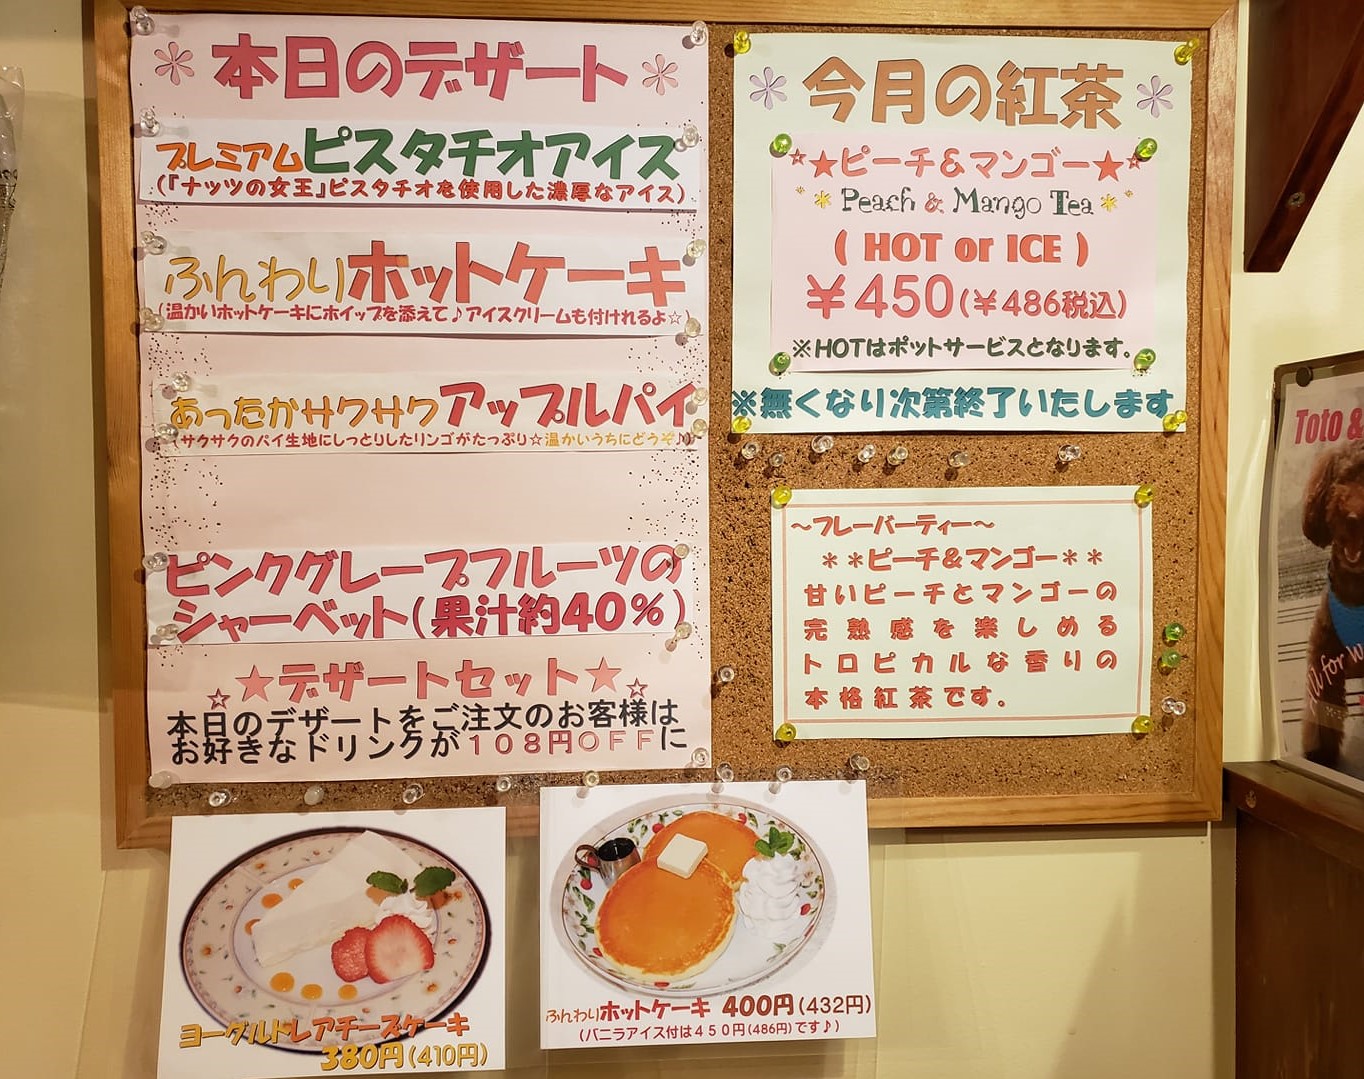 本日のデザート
プレミアムピスタチオアイス
(『ナッツの女王』ピスタチオを使用した濃厚なアイス)
ふんわりホットケーキ
(温かいホットケーキにホイップを添えて♪アイスクリームも付けれるよ☆)
あったかサクサクアップルパイ
(サクサクのパイ生地にしっとりしたリンゴがたっぷり☆温かいうちにどうぞ♪)
ピンクグレープフルーツの
シャーベット(果汁約40%)
★デザートセット★
本日のデザートをご注文のお客様は
お好きなドリンクが108円OFFに
今月の紅茶
☆★ピーチ&マンゴー★☆
Peach & Mango Tea
( HOT or ICE )
¥450(¥486税込)
※HOTはポットサービスとなります。
※無くなり次第終了いたします
～フレーバーティー～
＊＊ピーチ&マンゴー＊＊
甘いピーチとマンゴーの
完熟感を楽しめる
トロピカルな香りの
本格紅茶です。
ヨーグルトレアチーズケーキ
380円(410円)
ふんわりホットケーキ 400円(432円)
(バニラアイス付は450円(486円)です♪)
Toto &
for